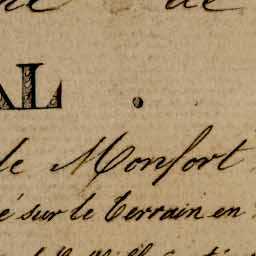 de
AL .
de Monfort
é sur le Terrain en